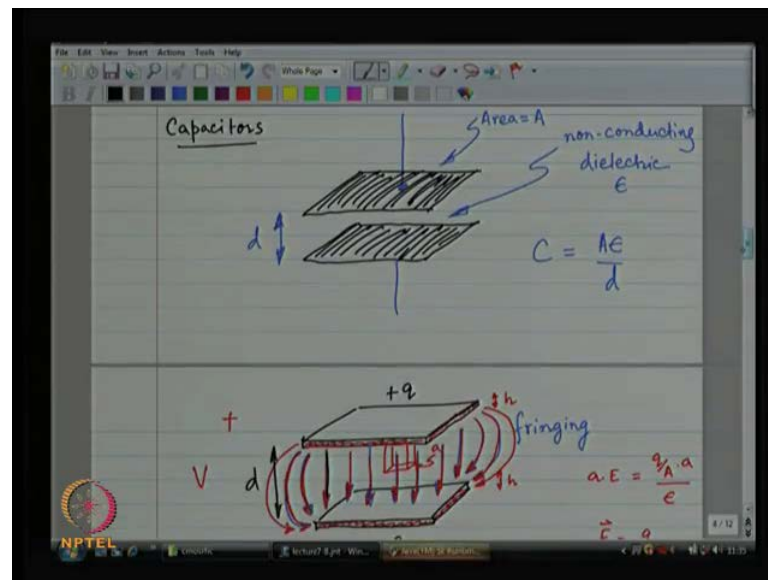 File Edit View Insert Actions Tools Help
Whole Page
B I
Capacitors
Area = A
non-conducting
dielectric
ϵ
d
C = Aϵ/d
+q
+
h
fringing
a
s
V
d
h
a.E = q/A . a / ϵ
NPTEL
8/12
lecture7 8.jnt - Win...
11:35